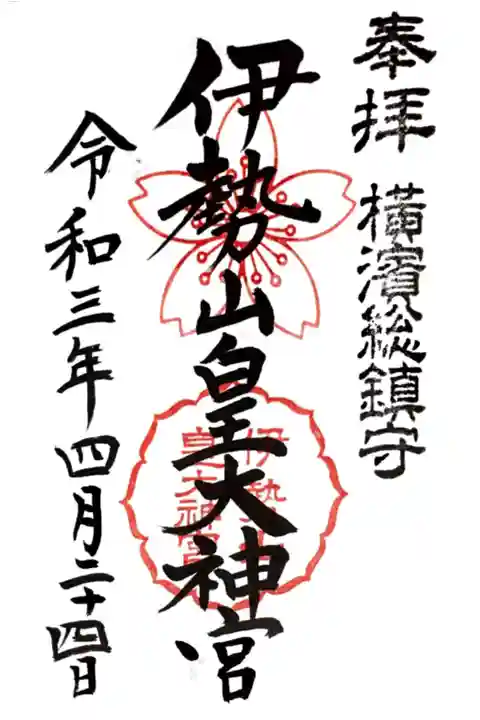 奉拝 横濱総鎮守
伊勢山皇大神宮
伊勢山
皇大神宮
令和三年四月二十四日